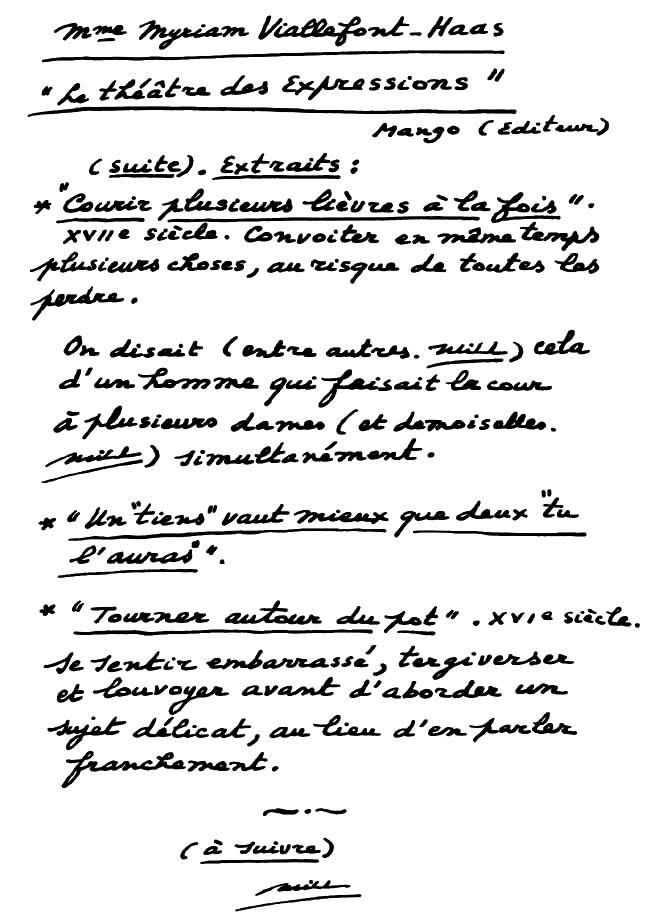 Mme Myriam Viallefont-Haas
"Le théâtre des Expressions"
Mango (Editeur)
(suite). Extraits :
* "Courir plusieurs lièvres à la fois".
XVIIe siècle. Convoiter en même temps
plusieurs choses, au risque de toutes les
perdre.
On disait (entre autres. ) cela
d'un homme qui faisait la cour
à plusieurs dames (et demoiselles.
) simultanément.
* "Un "tiens" vaut mieux que deux "tu
l'auras"".
* "Tourner autour du pot". XVIe siècle.
Se sentir embarrassé, tergiverser
et louvoyer avant d'aborder un
sujet délicat, au lieu d'en parler
franchement.
~.~
(à suivre)